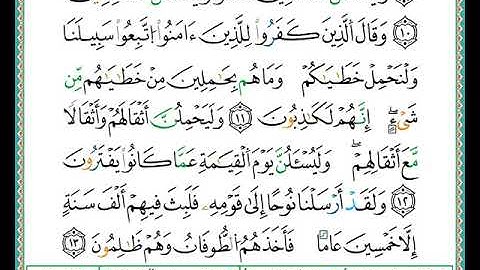 ﴿١٠﴾ وَقَالَ ٱلَّذِينَ كَفَرُوا۟ لِلَّذِينَ ءَامَنُوا۟ ٱتَّبِعُوا۟ سَبِيلَنَا
وَلْنَحْمِلْ خَطَـٰيَـٰكُمْ وَمَا هُم بِحَـٰمِلِينَ مِنْ خَطَـٰيَـٰهُم مِّن
شَىْءٍ ۖ إِنَّهُمْ لَكَـٰذِبُونَ ﴿١١﴾ وَلَيَحْمِلُنَّ أَثْقَالَهُمْ وَأَثْقَالًا
مَّعَ أَثْقَالِهِمْ ۖ وَلَيُسْـَٔلُنَّ يَوْمَ ٱلْقِيَـٰمَةِ عَمَّا كَانُوا۟ يَفْتَرُونَ
﴿١٢﴾ وَلَقَدْ أَرْسَلْنَا نُوحًا إِلَىٰ قَوْمِهِۦ فَلَبِثَ فِيهِمْ أَلْفَ سَنَةٍ
إِلَّا خَمْسِينَ عَامًا ۖ فَأَخَذَهُمُ ٱلطُّوفَانُ وَهُمْ ظَـٰلِمُونَ ﴿١٣﴾